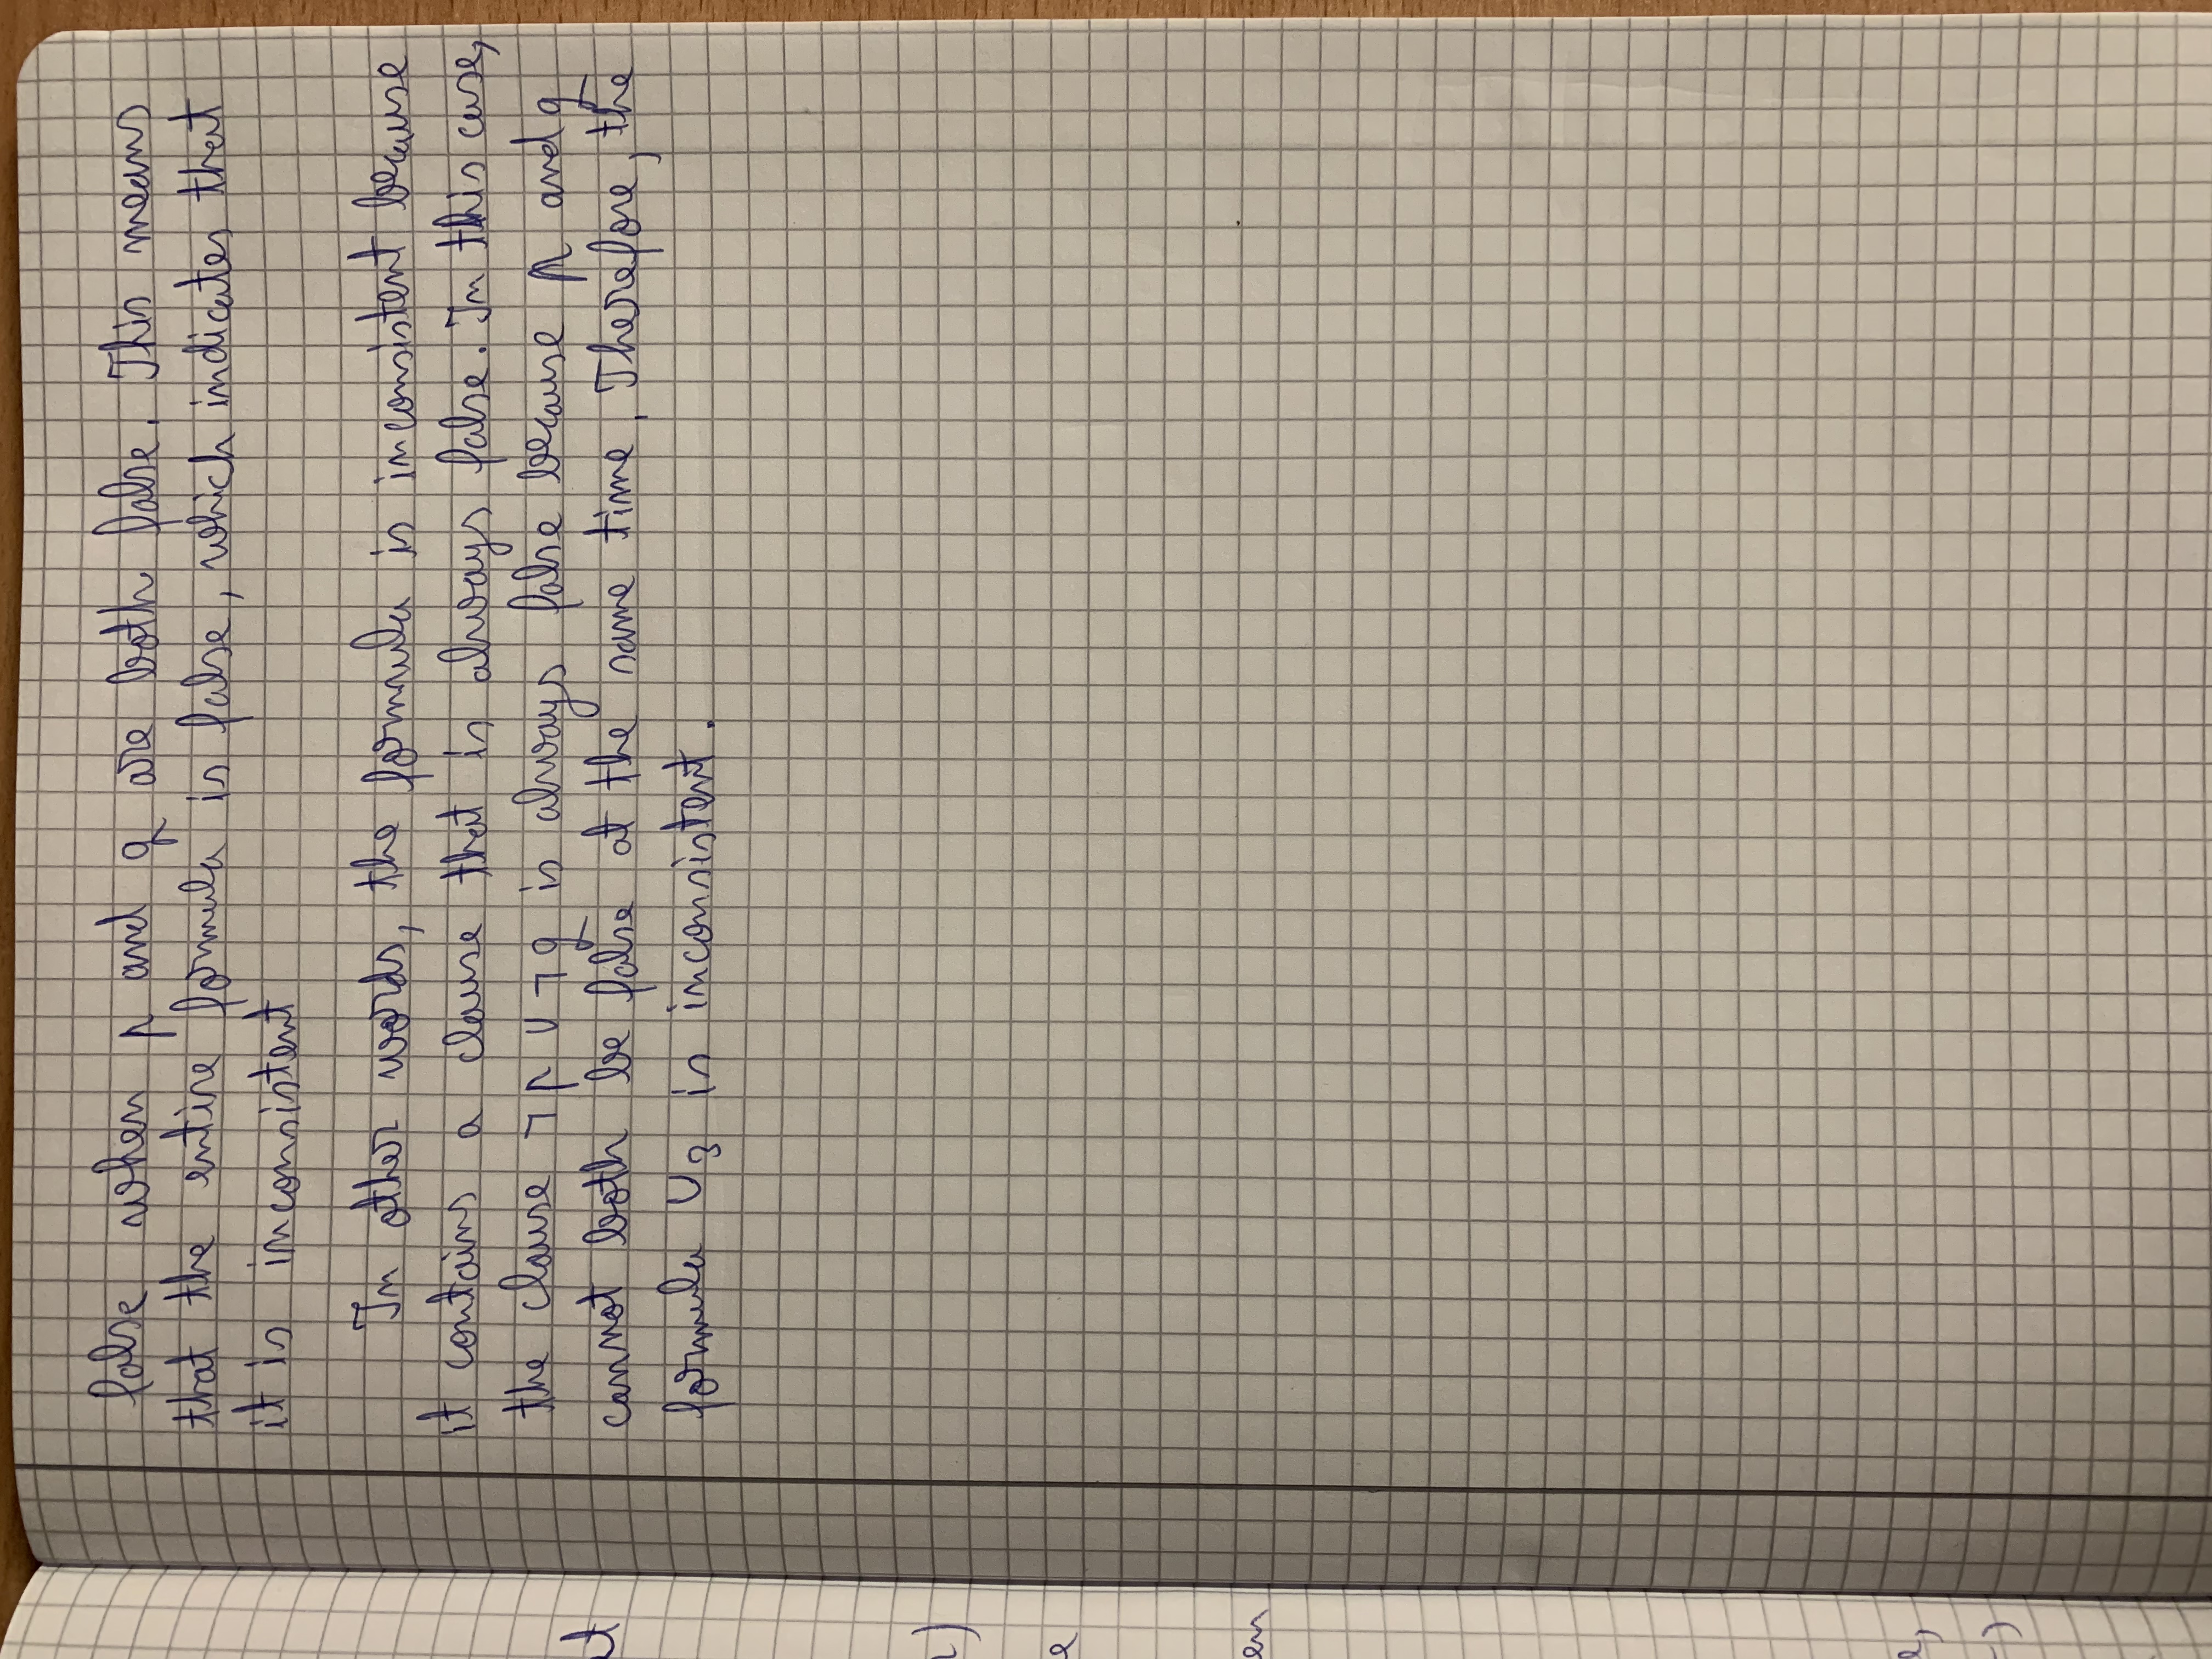 false when p and q are both false. This means
that the entire formula is false, which indicates that
it is inconsistent
In other words, the formula is inconsistent because
it contains a clause that is always false. In this case,
the clause ¬p ∨ ¬q is always false because p and q
cannot both be false at the same time. Therefore, the
formula U3 is inconsistent.